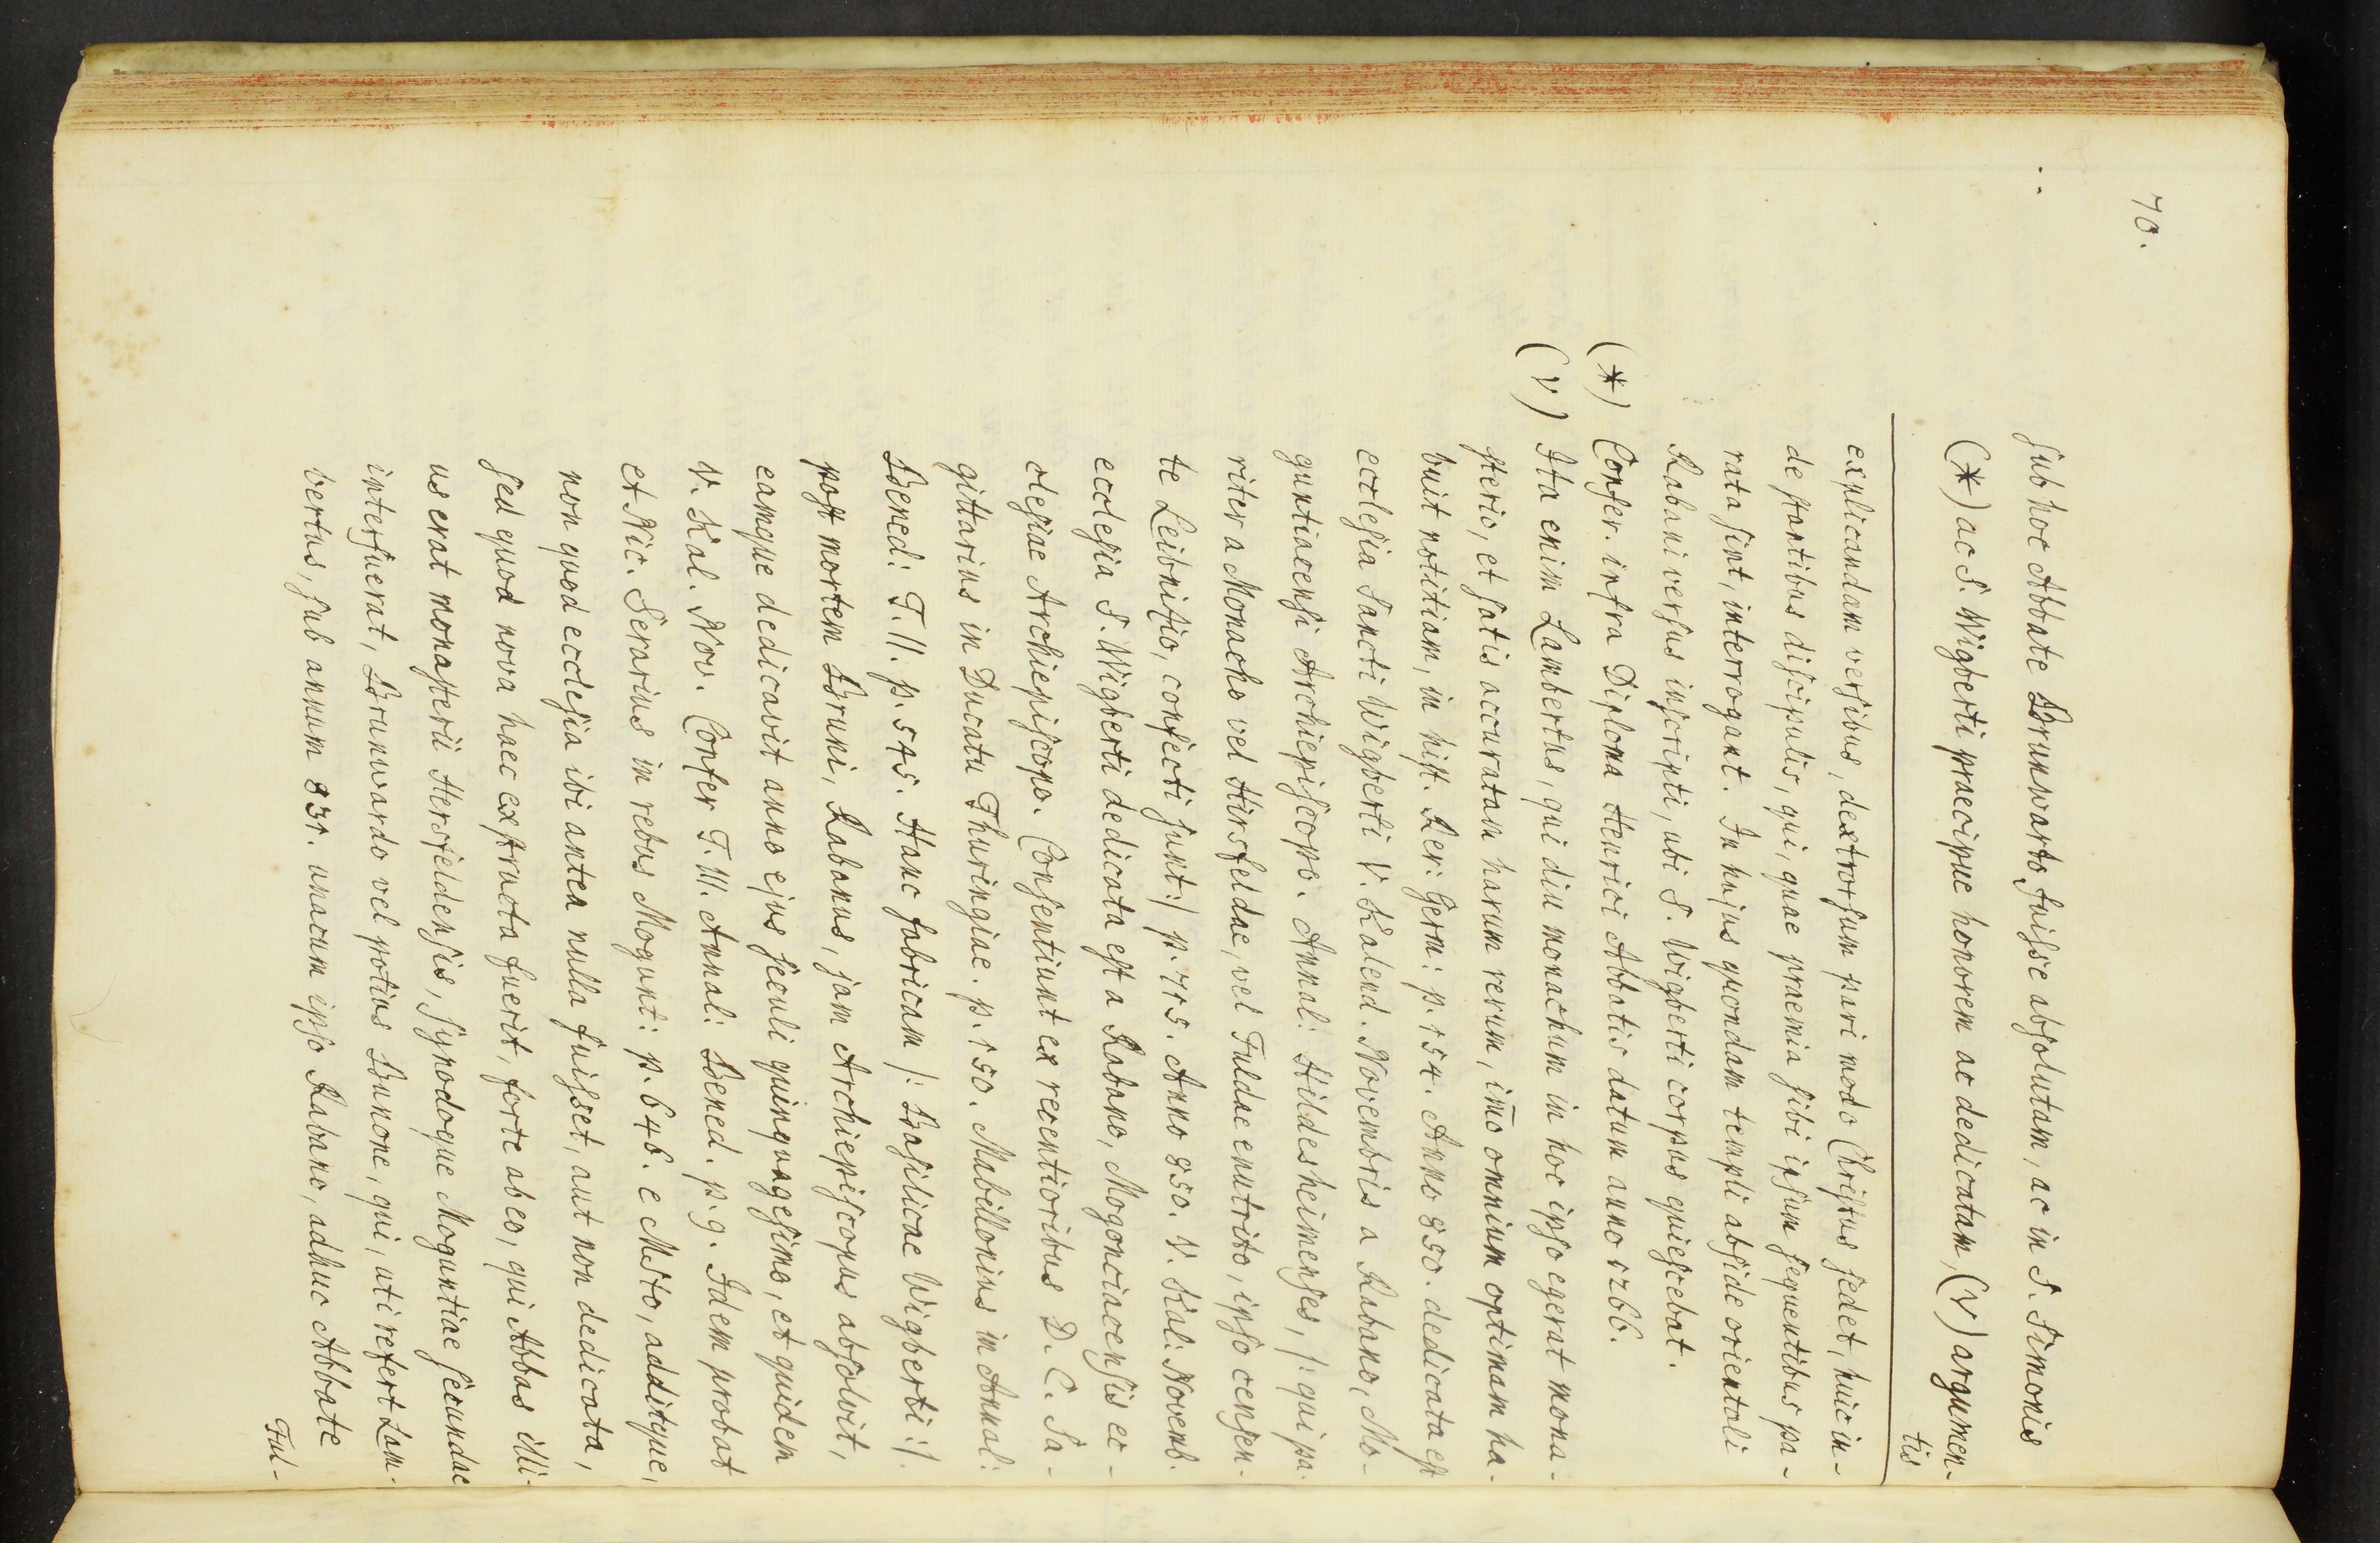 70.
sub hoc Abbate Brunwarto fuisse absolutam, ac in S. Simonis
(*) ac S. Wigberti praecipue honorem ac dedicatam, (γ) argumen-
tis
explicandam versibus, dextrorsum pari modo Christus sedet, huic in-
de stantibus discipulis, qui, quae praemia sibi ipsum sequentibus pa-
rata sint, interrogant. In hujus quondam templi abside orientali
Rabani versus inscripti, ubi S. Wigberti corpus quiescebat.
(*) Confer. infra Diploma Henrici Abbatis datum anno 1266.
(γ) Ita enim Lambertus, qui diu monachum in hoc ipso egerat mona-
sterio, et satis accuratam harum rerum, imo omnium optimam ha-
buit notitiam, in hist. Rer: Germ: p. 154. Anno 850. dedicata est
ecclesia Sancti Wigberti V. Kalend. Novembris a Rabano, Mo-
guntiacensi Archiepiscopo. Annal: Hildesheimenses, /: qui pa-
riter a Monacho vel Hirsfeldae, vel Fuldae enutrito, ipso censen-
te Leibnitio, confecti sunt :/ p. 715. Anno 850. V. Kal: Novemb.
ecclesia S. Wigberti dedicata est a Rabano, Mogonciacensis ec-
clesiae Archiepiscopo. Consentiunt ex recentioribus D. C. Sa-
gittarius in Ducatu Thuringiae. p. 150. Mabillonius in Annal:
Bened: T. II. p. 545. Hanc fabricam /: Basilicae Wigberti :/
post mortem Bruni, Rabanus, jam Archiepiscopus absolvit,
eamque dedicavit anno ejus seculi quinquagesimo, et quidem
V. Kal. Nov. Confer T. III. Annal: Bened. p. 9. Idem probat
et Nic. Serarius in rebus Mogunt: p. 646. e Msto, additque,
non quod ecclesia ibi antea nulla fuisset, aut non dedicata,
sed quod nova haec exstructa fuerit, forte ab eo, qui Abbas illi-
us erat monasterii Hersfeldensis, synodoque Moguntiae secundae
interfuerat, Brunwardo vel potius Bunone, qui, uti refert Lam-
bertus, sub annum 831. unacum ipso Rabano, adhuc Abbate
Ful-